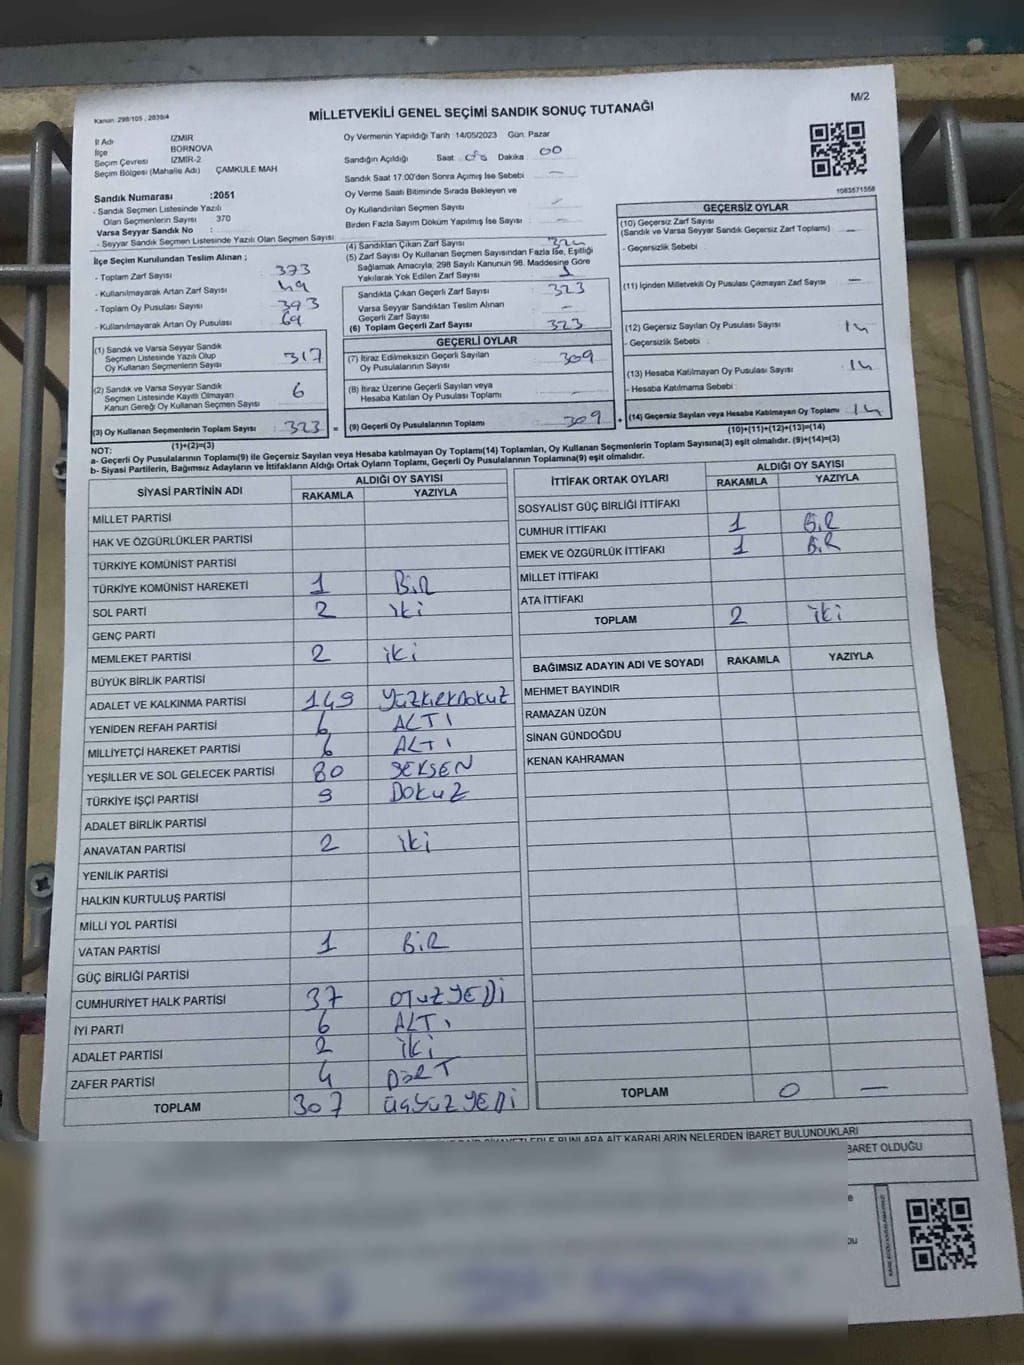 Kanun: 298/105 , 2839/4
MİLLETVEKİLİ GENEL SEÇİMİ SANDIK SONUÇ TUTANAĞI
M/2
İl Adı İZMİR
İlçe BORNOVA
Seçim Çevresi İZMİR-2
Seçim Bölgesi (Mahalle Adı) ÇAMKULE MAH
Sandık Numarası :2051
- Sandık Seçmen Listesinde Yazılı
Olan Seçmenlerin Sayısı 370
Varsa Seyyar Sandık No :
- Seyyar Sandık Seçmen Listesinde Yazılı Olan Seçmen Sayısı
İlçe Seçim Kurulundan Teslim Alınan ;
- Toplam Zarf Sayısı : 373
- Kullanılmayarak Artan Zarf Sayısı : 49
- Toplam Oy Pusulası Sayısı : 393
- Kullanılmayarak Artan Oy Pusulası : 69
(1) Sandık ve Varsa Seyyar Sandık
Seçmen Listesinde Yazılı Olup
Oy Kullanan Seçmenlerin Sayısı : 317
(2) Sandık ve Varsa Seyyar Sandık
Seçmen Listesinde Kayıtlı Olmayan
Kanun Gereği Oy Kullanan Seçmen Sayısı : 6
(3) Oy Kullanan Seçmenlerin Toplam Sayısı : 323 =
(1)+(2)=(3)
Oy Vermenin Yapıldığı Tarih 14/05/2023 Gün: Pazar
Sandığın Açıldığı Saat Dakika 00
Sandık Saat 17.00'den Sonra Açımış İse Sebebi —
Oy Verme Saati Bitiminde Sırada Bekleyen ve
Oy Kullandırılan Seçmen Sayısı
Birden Fazla Sayım Döküm Yapılmış İse Sayısı :
(4) Sandıktan Çıkan Zarf Sayısı : 324
(5) Zarf Sayısı Oy Kullanan Seçmen Sayısından Fazla İse, Eşitliği
Sağlamak Amacıyla, 298 Sayılı Kanunun 98. Maddesine Göre
Yakılarak Yok Edilen Zarf Sayısı : 1
Sandıkta Çıkan Geçerli Zarf Sayısı : 323
Varsa Seyyar Sandıktan Teslim Alınan
Geçerli Zarf Sayısı : —
(6) Toplam Geçerli Zarf Sayısı : 323
GEÇERLİ OYLAR
(7) İtiraz Edilmeksizin Geçerli Sayılan
Oy Pusulalarının Sayısı : 309
(8) İtiraz Üzerine Geçerli Sayılan veya
Hesaba Katılan Oy Pusulası Toplamı :
(9) Geçerli Oy Pusulalarının Toplamı : 309 +
1083571558
GEÇERSİZ OYLAR
(10) Geçersiz Zarf Sayısı
(Sandık ve Varsa Seyyar Sandık Geçersiz Zarf Toplamı) : —
- Geçersizlik Sebebi :
(11) İçinden Milletvekili Oy Pusulası Çıkmayan Zarf Sayısı : —
(12) Geçersiz Sayılan Oy Pusulası Sayısı : 14
- Geçersizlik Sebebi :
(13) Hesaba Katılmayan Oy Pusulası Sayısı : 14
- Hesaba Katılmama Sebebi :
(14) Geçersiz Sayılan veya Hesaba Katılmayan Oy Toplamı : 14
(10)+(11)+(12)+(13)=(14)
NOT:
a- Geçerli Oy Pusulalarının Toplamı(9) ile Geçersiz Sayılan veya Hesaba katılmayan Oy Toplamı(14) Toplamları, Oy Kullanan Seçmenlerin Toplam Sayısına(3) eşit olmalıdır. (9)+(14)=(3)
b- Siyasi Partilerin, Bağımsız Adayların ve İttifakların Aldığı Ortak Oyların Toplamı, Geçerli Oy Pusulalarının Toplamına(9) eşit olmalıdır.
SİYASİ PARTİNİN ADI ALDIĞI OY SAYISI
RAKAMLA YAZIYLA
MİLLET PARTİSİ
HAK VE ÖZGÜRLÜKLER PARTİSİ
TÜRKİYE KOMÜNİST PARTİSİ
TÜRKİYE KOMÜNİST HAREKETİ 1 BİR
SOL PARTİ 2 iki
GENÇ PARTİ
MEMLEKET PARTİSİ 2 iki
BÜYÜK BİRLİK PARTİSİ
ADALET VE KALKINMA PARTİSİ 149 YÜZKIRKDOKUZ
YENİDEN REFAH PARTİSİ 6 ALTI
MİLLİYETÇİ HAREKET PARTİSİ 6 ALTI
YEŞİLLER VE SOL GELECEK PARTİSİ 80 SEKSEN
TÜRKİYE İŞÇİ PARTİSİ 9 DOKUZ
ADALET BİRLİK PARTİSİ
ANAVATAN PARTİSİ 2 iki
YENİLİK PARTİSİ
HALKIN KURTULUŞ PARTİSİ
MİLLİ YOL PARTİSİ
VATAN PARTİSİ 1 BİR
GÜÇ BİRLİĞİ PARTİSİ
CUMHURİYET HALK PARTİSİ 37 OTUZYEDİ
İYİ PARTİ 6 ALTI
ADALET PARTİSİ 2 iki
ZAFER PARTİSİ 4 DÖRT
TOPLAM 307 ÜÇYÜZYEDİ
İTTİFAK ORTAK OYLARI ALDIĞI OY SAYISI
RAKAMLA YAZIYLA
SOSYALİST GÜÇ BİRLİĞİ İTTİFAKI
CUMHUR İTTİFAKI 1 BİR
EMEK VE ÖZGÜRLÜK İTTİFAKI 1 BİR
MİLLET İTTİFAKI
ATA İTTİFAKI
TOPLAM 2 iki
BAĞIMSIZ ADAYIN ADI VE SOYADI RAKAMLA YAZIYLA
MEHMET BAYINDIR
RAMAZAN ÜZÜN
SİNAN GÜNDOĞDU
KENAN KAHRAMAN
TOPLAM 0 —
KARARLARIN NELERDEN İBARET BULUNDUKLARI
BARET OLDUĞU